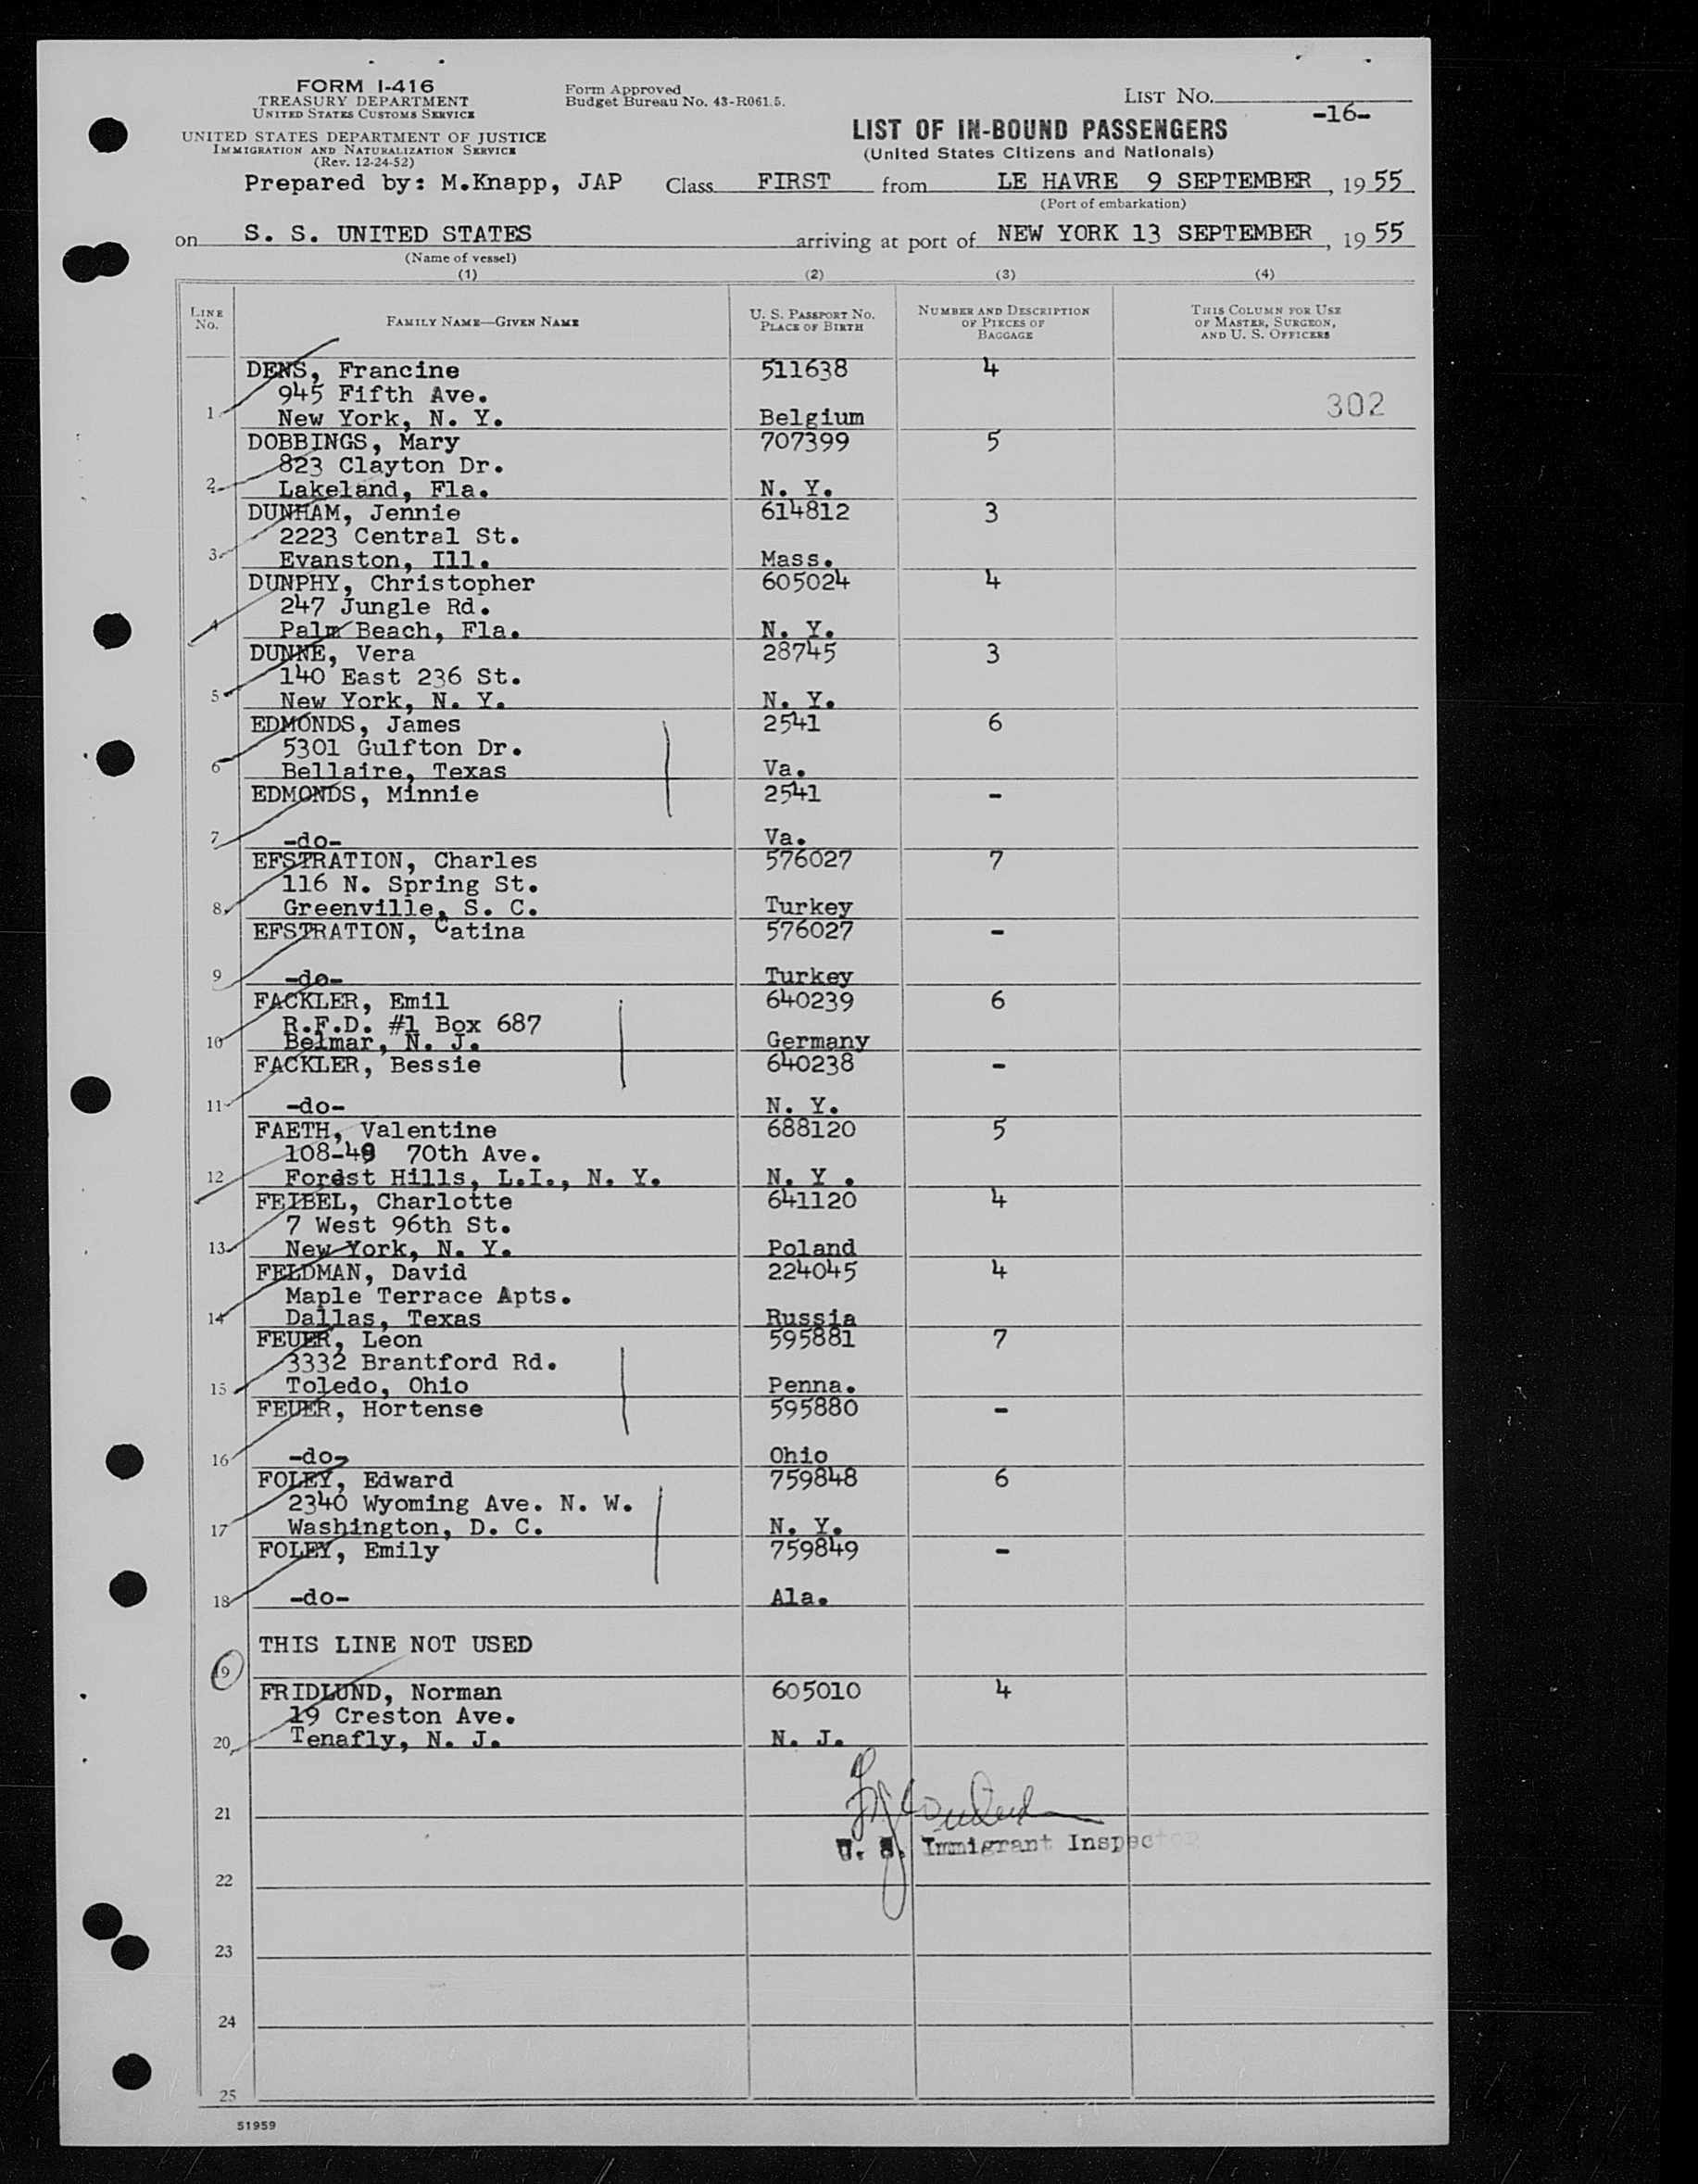 FORM I-416
TREASURY DEPARTMENT
UNITED STATES CUSTOMS SERVICE
UNITED STATES DEPARTMENT OF JUSTICE
IMMIGRATION AND NATURALIZATION SERVICE
(Rev. 12-24-52)
Form Approved
Budget Bureau No. 43-R061.5.
LIST NO.
-16-
LIST OF IN-BOUND PASSENGERS
(United States Citizens and Nationals)
Prepared by: M.Knapp, JAP Class FIRST from LE HAVRE 9 SEPTEMBER, 1955
(Port of embarkation)
on S. S. UNITED STATES arriving at port of NEW YORK 13 SEPTEMBER, 1955
(Name of vessel)
(1) (2) (3) (4)
LINE No. FAMILY NAME—GIVEN NAME U. S. PASSPORT NO. PLACE OF BIRTH NUMBER AND DESCRIPTION OF PIECES OF BAGGAGE THIS COLUMN FOR USE OF MASTER, SURGEON, AND U. S. OFFICERS
DENS, Francine 511638 4
945 Fifth Ave. 302
1 New York, N. Y. Belgium
DOBBINGS, Mary 707399 5
823 Clayton Dr.
2 Lakeland, Fla. N. Y.
DUNHAM, Jennie 614812 3
2223 Central St.
3 Evanston, Ill. Mass.
DUNPHY, Christopher 605024 4
247 Jungle Rd.
4 Palm Beach, Fla. N. Y.
DUNNE, Vera 28745 3
140 East 236 St.
5 New York, N. Y. N. Y.
EDMONDS, James 2541 6
5301 Gulfton Dr.
6 Bellaire, Texas Va.
EDMONDS, Minnie 2541 -
7 -do- Va.
EFSTRATION, Charles 576027 7
116 N. Spring St.
8 Greenville, S. C. Turkey
EFSTRATION, Catina 576027 -
9 -do- Turkey
FACKLER, Emil 640239 6
R.F.D. #1 Box 687
10 Belmar, N. J. Germany
FACKLER, Bessie 640238 -
11 -do- N. Y.
FAETH, Valentine 688120 5
108-49 70th Ave.
12 Forest Hills, L.I., N. Y. N. Y .
FEIBEL, Charlotte 641120 4
7 West 96th St.
13 New York, N. Y. Poland
FELDMAN, David 224045 4
Maple Terrace Apts.
14 Dallas, Texas Russia
FEUER, Leon 595881 7
3332 Brantford Rd.
15 Toledo, Ohio Penna.
FEUER, Hortense 595880 -
16 -do- Ohio
FOLEY, Edward 759848 6
2340 Wyoming Ave. N. W.
17 Washington, D. C. N. Y.
FOLEY, Emily 759849 -
18 -do- Ala.
THIS LINE NOT USED
19
FRIDLUND, Norman 605010 4
19 Creston Ave.
20 Tenafly, N. J. N. J.
21
U. S. Immigrant Inspector
22
23
24
25
51959